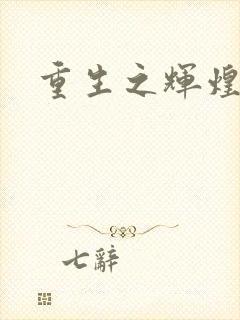 重生之輝煌
七辭